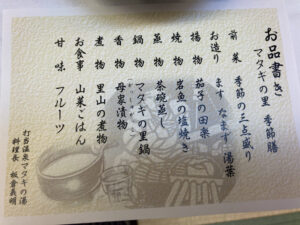 お品書き
マタギの里 季節膳
前菜 季節の三点盛り
お造り ます なます 湯葉
揚物 茄子の田楽
焼物 岩魚の塩焼き
蒸物 茶碗蒸し
鍋物 マタギの里鍋
香物 母家漬物
煮物 里山の煮物
お食事 山菜ごはん
甘味 フルーツ
打当温泉マタギの湯
料理長 板倉義明